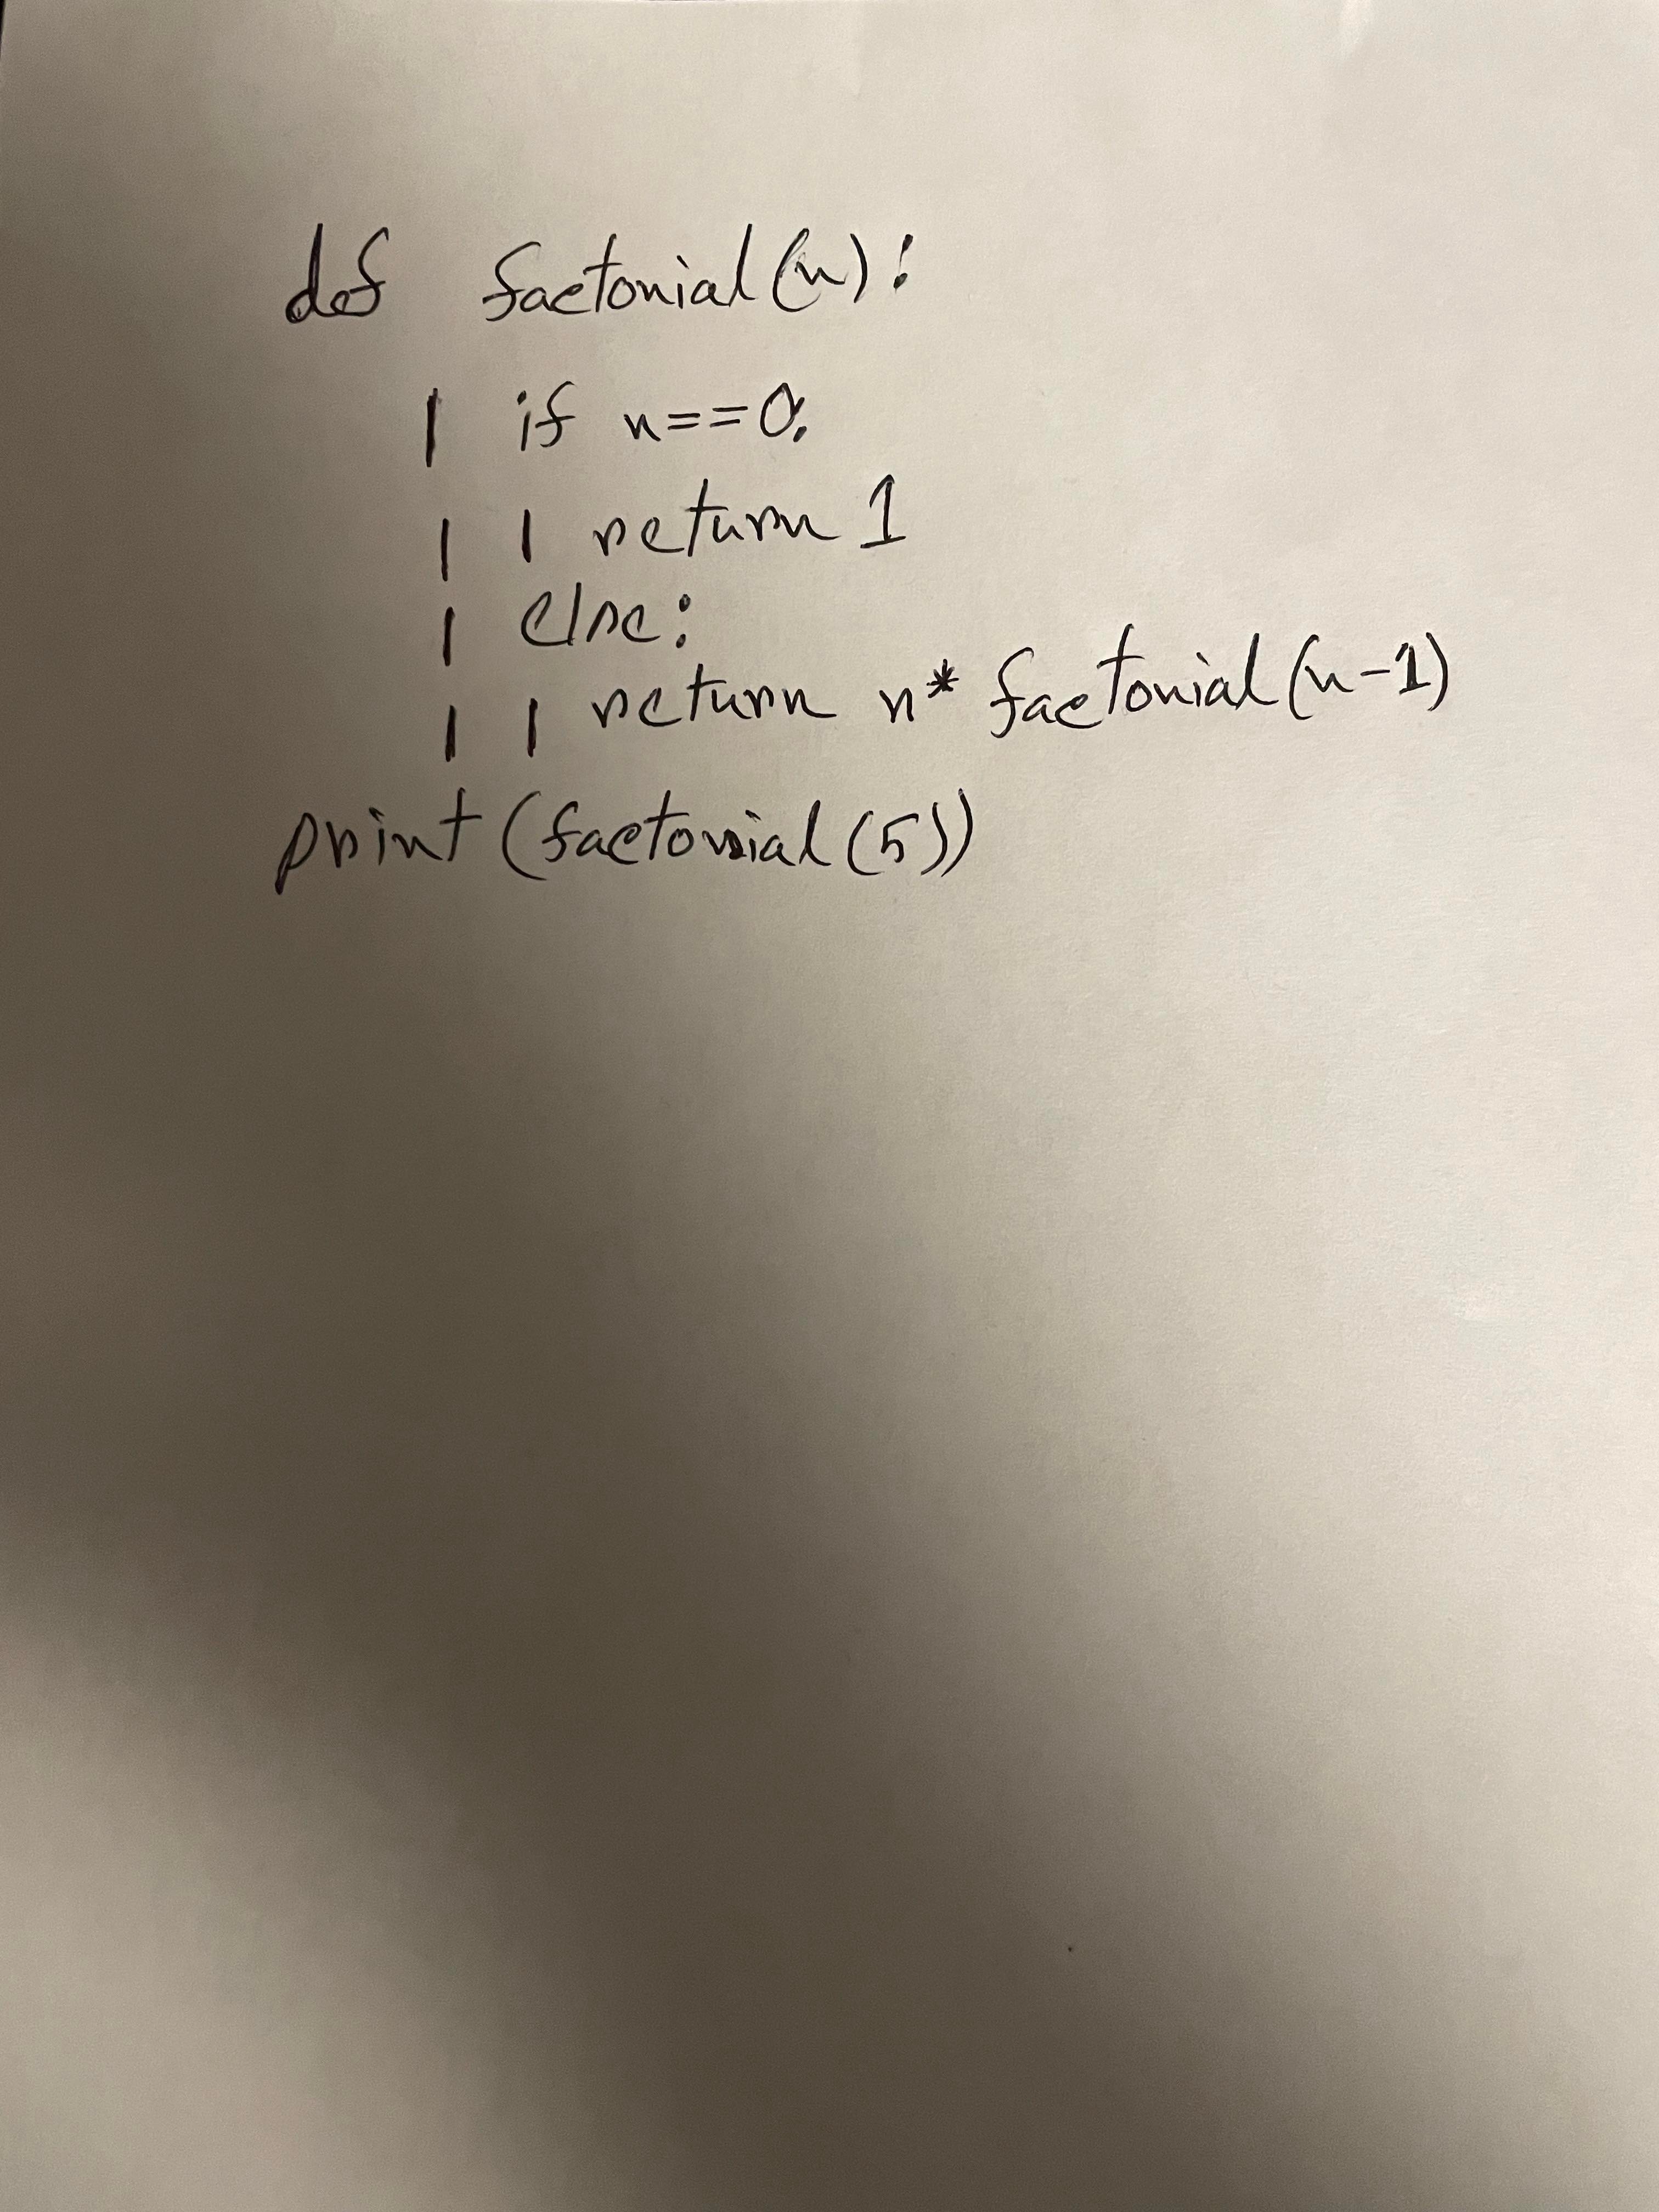 def factorial(n):
| if n==0:
| | return 1
| else:
| | return n* factorial(n-1)
print(factorial(5))